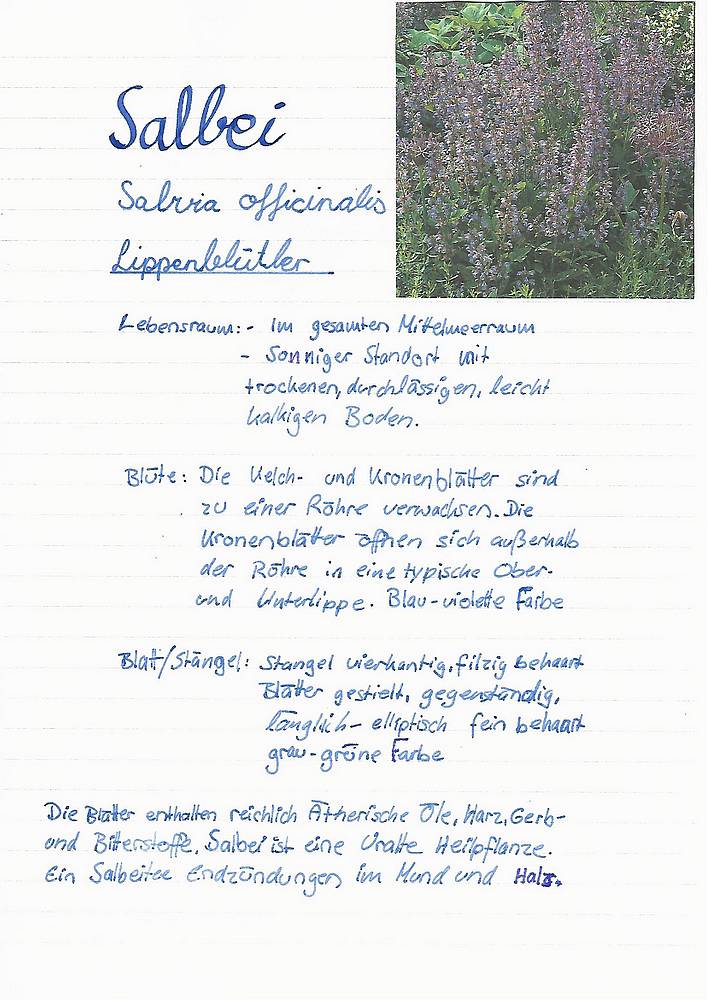 Salbei
Salvia officinalis
Lippenblütler
Lebensraum: - im gesamten Mittelmeerraum
- Sonniger Standort mit
trockenen, durchlässigen, leicht
kalkigen Boden.
Blüte: Die Kelch- und Kronenblätter sind
zu einer Röhre verwachsen. Die
Kronenblätter öffnen sich außerhalb
der Röhre in eine typische Ober-
und Unterlippe. Blau-violette Farbe
Blatt/Stängel: Stangel vierkantig, filzig behaart
Blätter gestielt, gegenständig,
länglich- elliptisch fein behaart
grau-grüne Farbe
Die Blätter enthalten reichlich Ätherische Öle, Harz, Gerb-
und Bitterstoffe. Salbei ist eine Uralte Heilpflanze.
Ein Salbeitee Endzündungen im Mund und Hals.